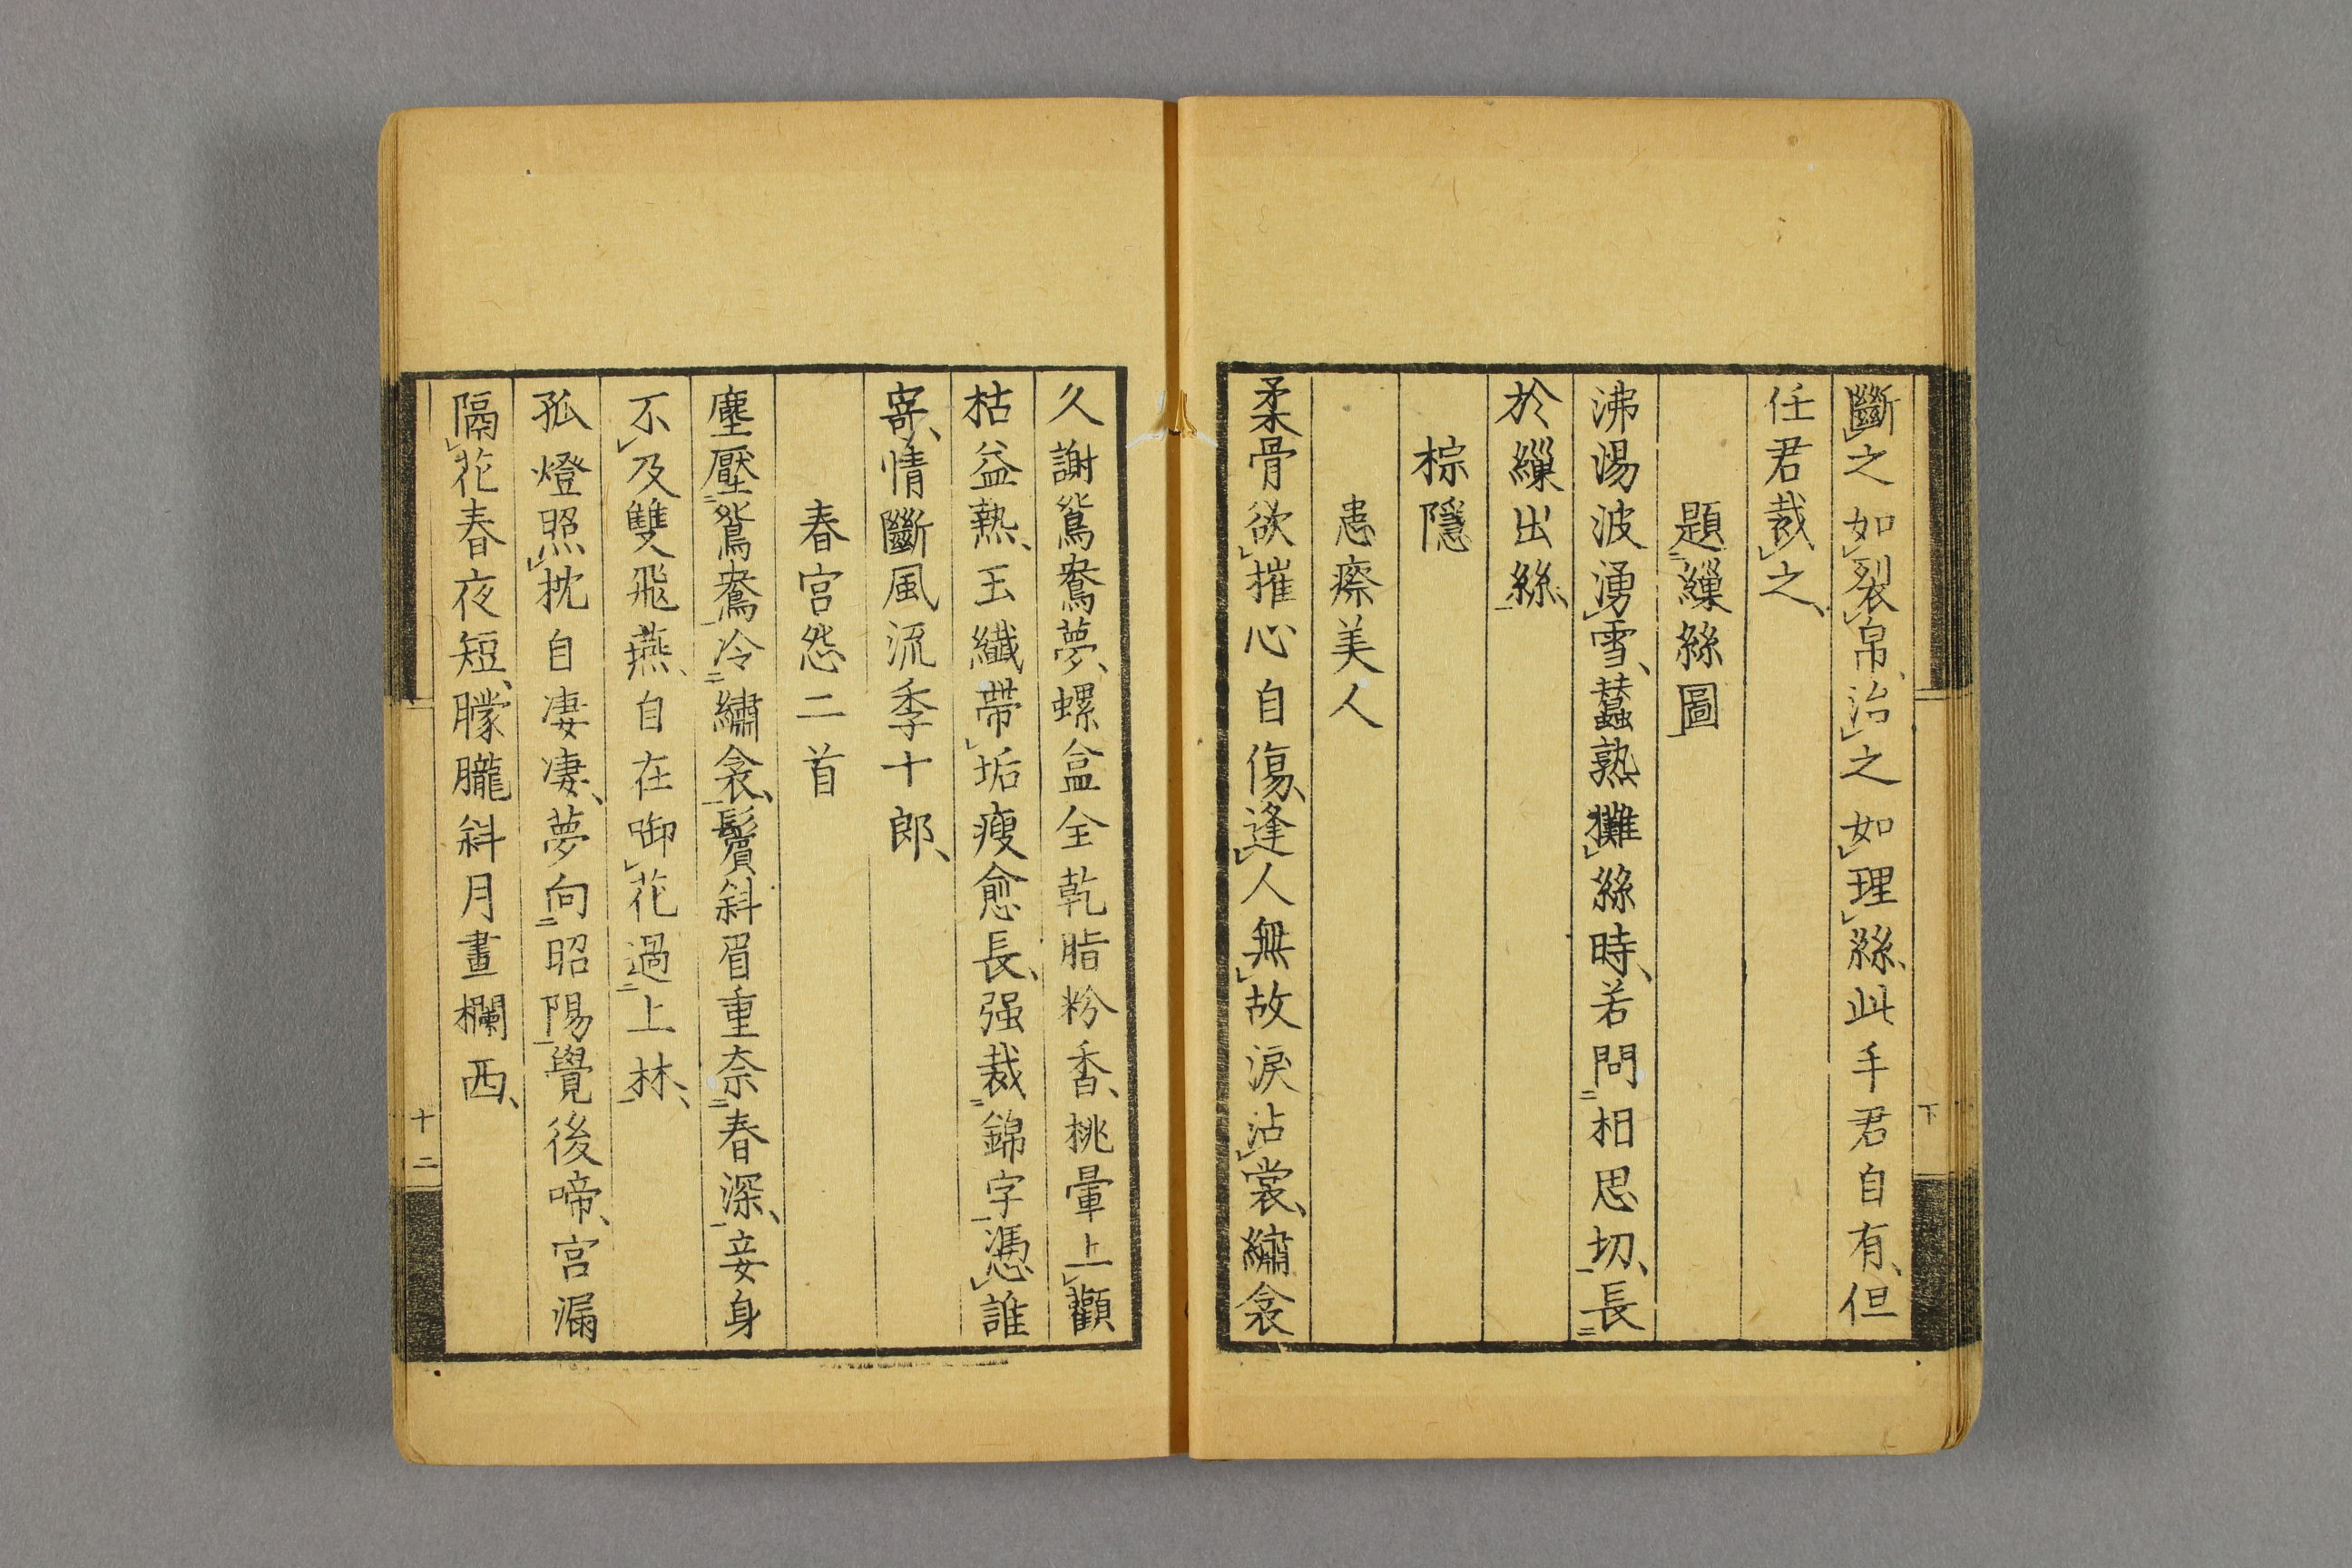 斷之如裂帛治之如理絲此手君自有但
任君裁之
題繅絲圖
沸湯波湧雪蠶熟攤絲時若問相思切長
於繅出絲
棕隱
恚瘵美人
柔骨欲摧心自傷逢人無故淚沾裳繡衾
下
久謝鴛鴦夢螺盒全乾脂粉香桃暈上顴
枯益熱玉纖帶垢瘦愈長强裁錦字憑誰
寄情斷風流季十郎
春宮怨二首
塵壓鴛鴦冷繡衾鬢斜眉重奈春深妾身
不及雙飛燕自在啣花過上林
孤燈照枕自凄凄夢向昭陽覺後啼宮漏
隔花春夜短朦朧斜月畫欄西
十二